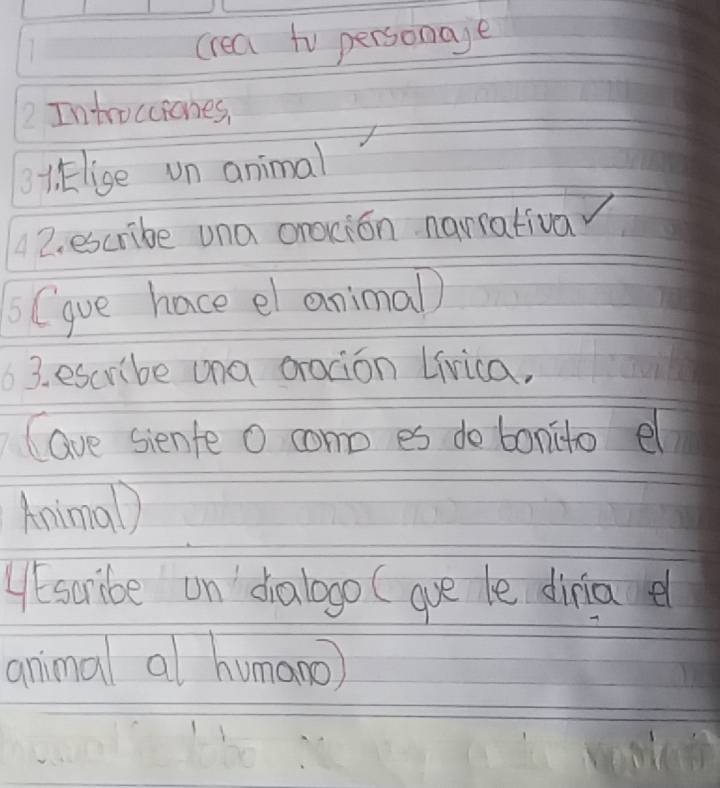 1 Crea tu personaje
2 Introcciones,
3 1. Elige un animal ✓
4 2. escribe una oración narrativa ✓
5 (que hace el animal)
6 3. escribe una oración Lírica.
7 (Que siente o como es de bonito el
Animal)
4 Escribe un dialogo (que le diria el
animal al humano)